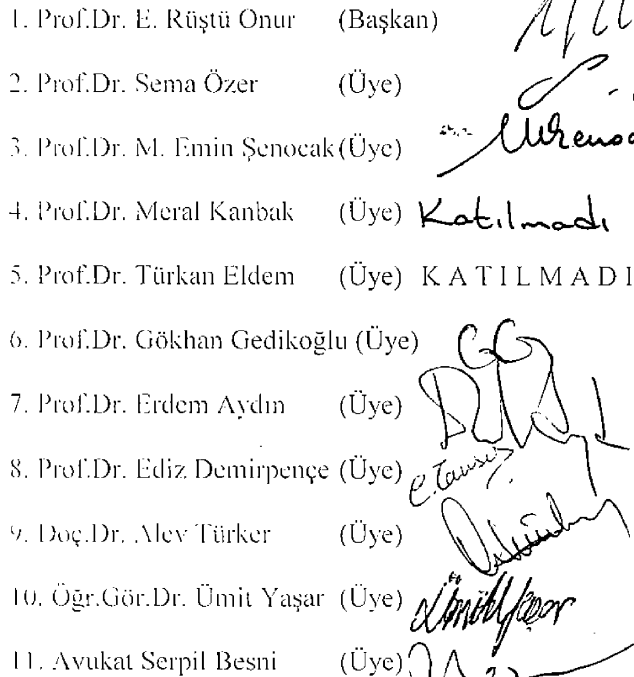 1. Prof.Dr. E. Rüştü Onur (Başkan)
2. Prof.Dr. Sema Özer (Üye)
3. Prof.Dr. M. Emin Şenocak (Üye)
4. Prof.Dr. Meral Kanbak (Üye) Katılmadı
5. Prof.Dr. Türkan Eldem (Üye) K A T I L M A D I
6. Prof.Dr. Gökhan Gedikoğlu (Üye)
7. Prof.Dr. Erdem Aydın (Üye)
8. Prof.Dr. Ediz Demirpençe (Üye)
9. Doç.Dr. Alev Türker (Üye)
10. Öğr.Gör.Dr. Ümit Yaşar (Üye)
11. Avukat Serpil Besni (Üye)